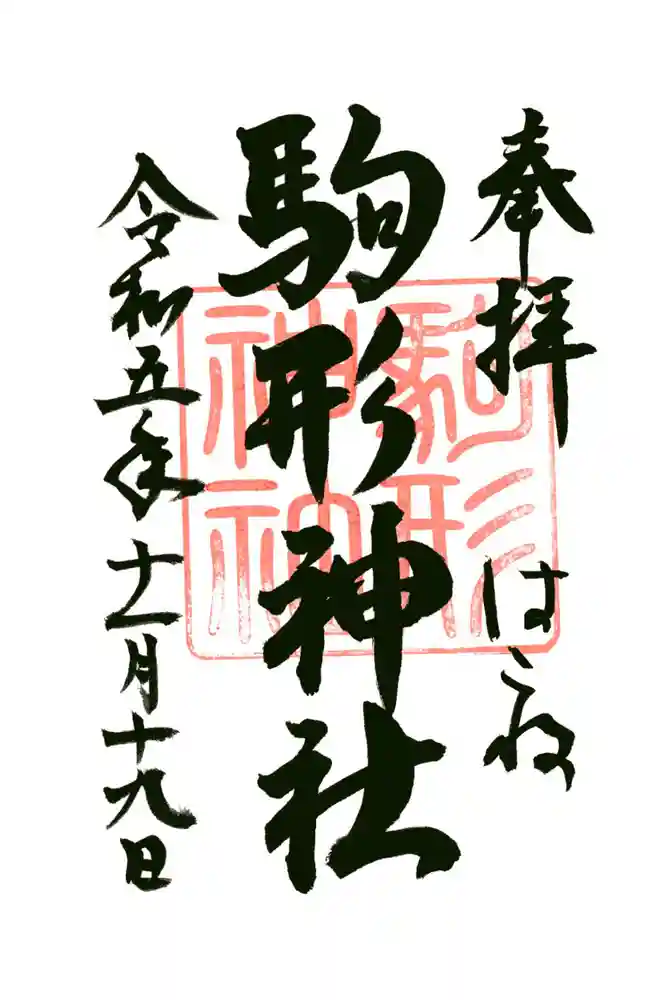 奉拝 はこね
駒形神社
令和五年十一月十九日
駒形